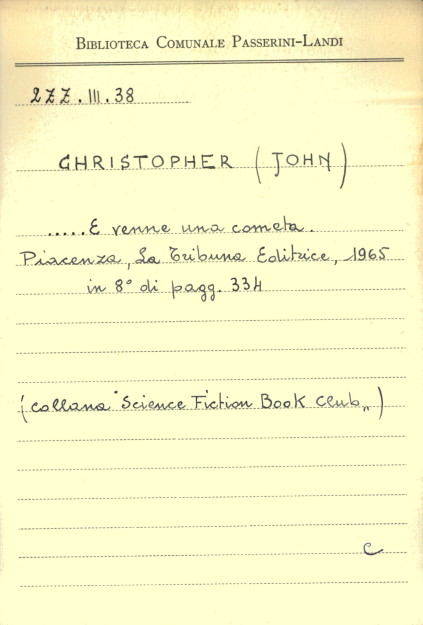 BIBLIOTECA COMUNALE PASSERINI-LANDI
2ZZ.III.38
CHRISTOPHER (JOHN)
.....E venne una cometa.
Piacenza, La Tribuna Editrice, 1965
in 8° di pagg. 334
(collana "Science Fiction Book Club„)
C